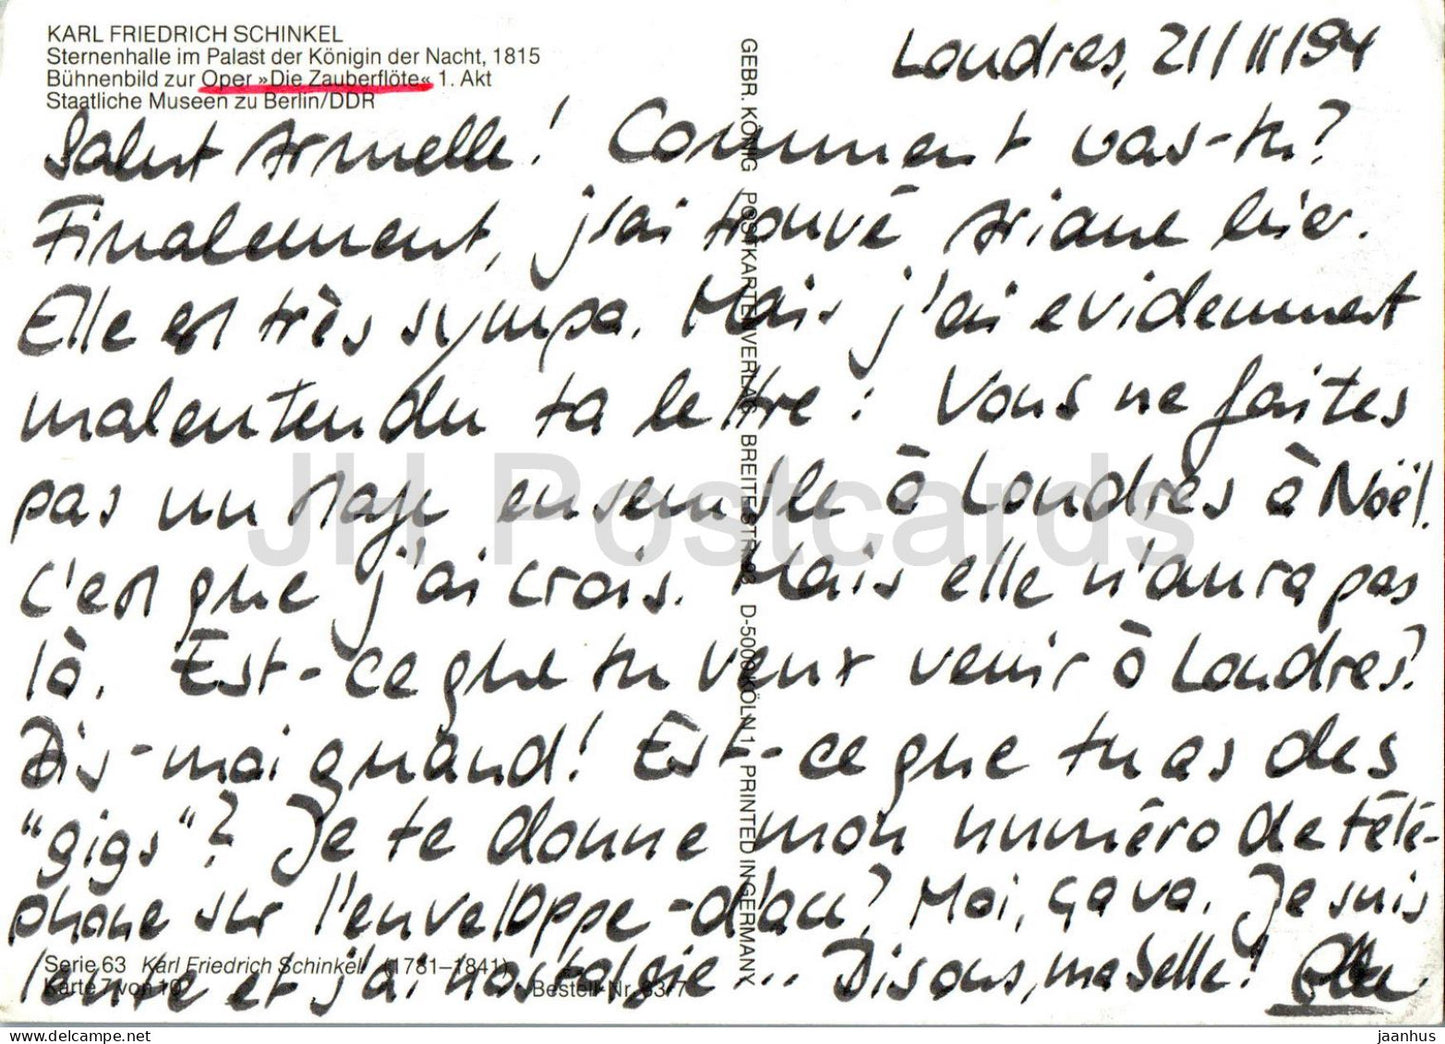 KARL FRIEDRICH SCHINKEL
Sternenhalle im Palast der Königin der Nacht, 1815
Bühnenbild zur Oper »Die Zauberflöte« 1. Akt
Staatliche Museen zu Berlin/DDR
Londres, 21/11/94
Salut Armelle! Comment vas-tu?
Finalement, j'ai trouvé Ariane hier.
Elle est très sympa. Mais j'ai evidemment
malentendu ta lettre: Vous ne faites
pas un stage ensemble à Londres à Noël.
C'est que j'ai crois. Mais elle n'aura pas
là. Est-ce que tu veux venir à Londres?
Dis-moi quand! Est-ce que tu as des
"gigs"? Je te donne mon numéro de télé-
phone sur l'enveloppe - d'acc? Moi, ça va. Je suis
et j'ai nostalgie... Disons, ma belle!
Serie 63 Karl Friedrich Schinkel (1781–1841)
Karte 7 von 10 Bestell-Nr. 63/7
GEBR. KÖNIG POSTKARTENVERLAG BREITE STR. 93 D-5000 KÖLN 1 PRINTED IN GERMANY X
JH Postcards
jaanhus™